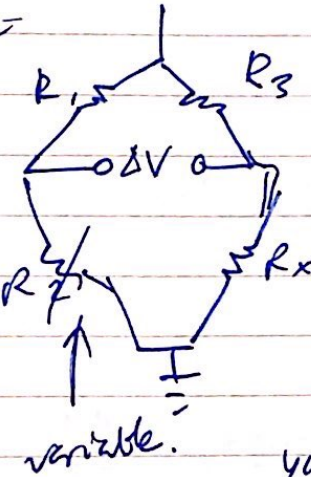 R1 R3
ΔV
R Rx
variable.